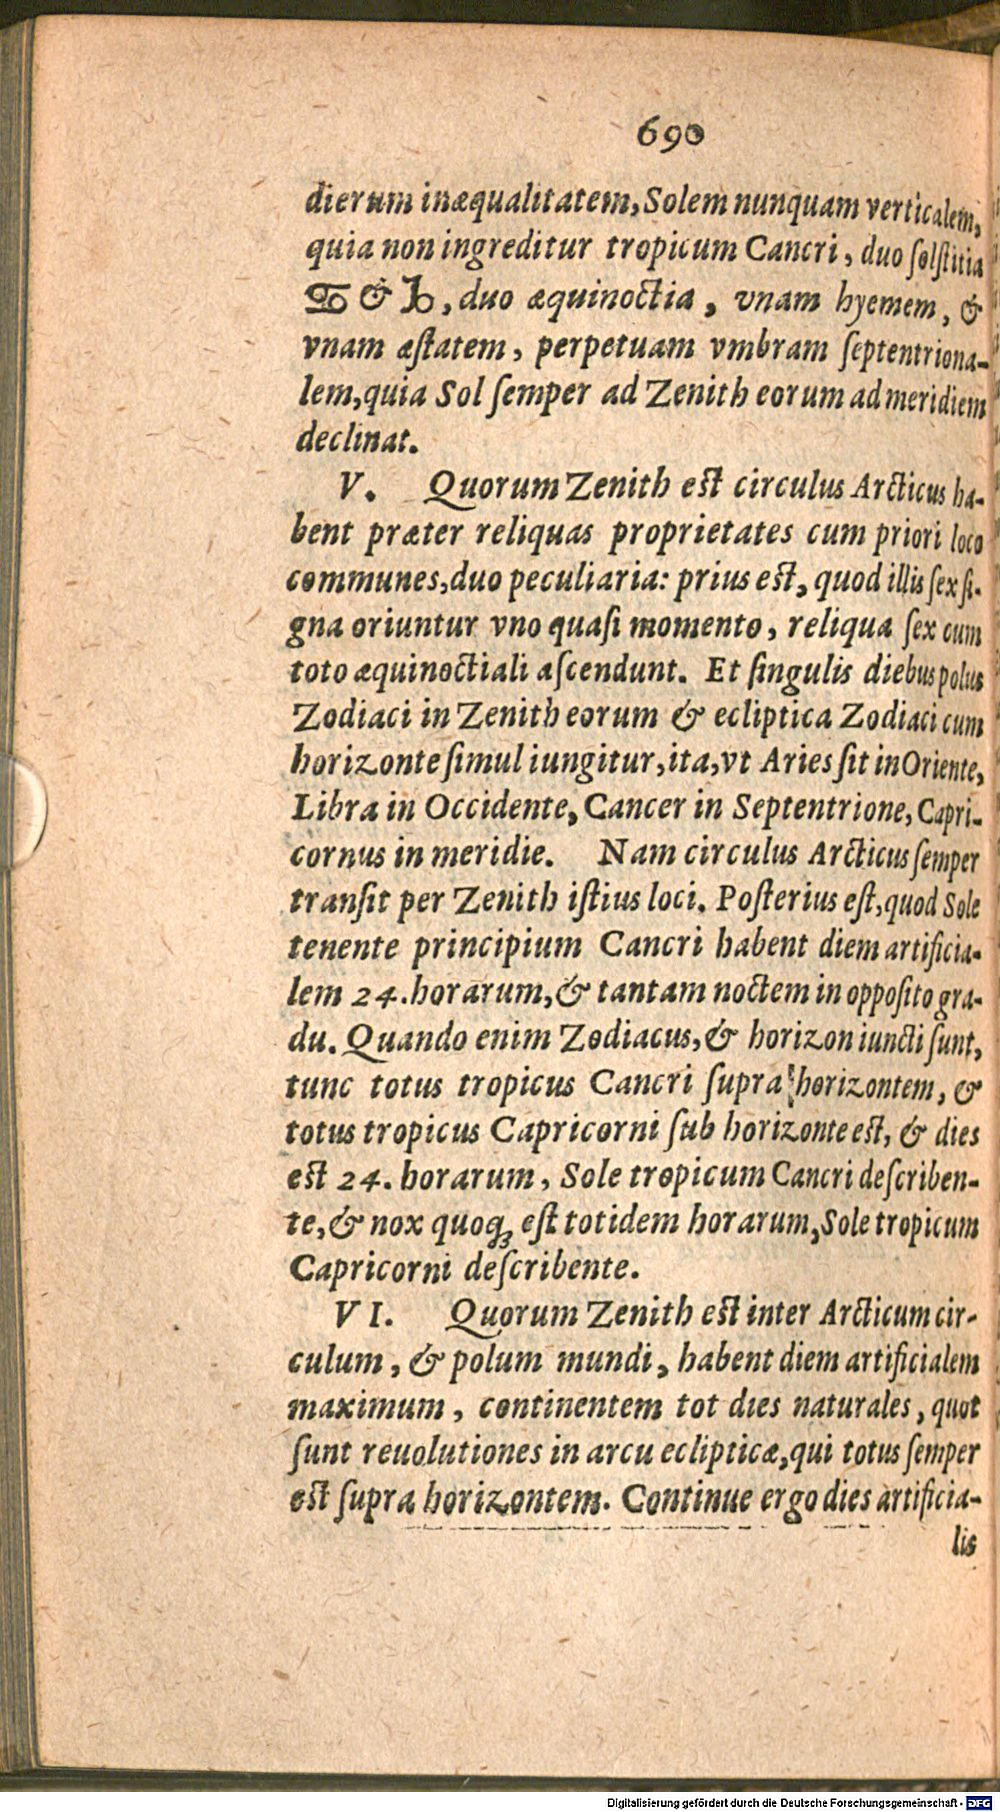 690
dierum inæqualitatem, Solem nunquam verticalem,
quia non ingreditur tropicum Cancri, duo ſolſtitia
♋ & ♑, duo æquinoctia, vnam hyemem, &
vnam æſtatem, perpetuam vmbram ſeptentriona-
lem, quia Sol ſemper ad Zenith eorum ad meridiem
declinat.
V. Quorum Zenith eſt circulus Arcticus ha-
bent præter reliquas proprietates cum priori loco
communes, duo peculiaria: prius eſt, quod illis ſex ſi-
gna oriuntur vno quaſi momento, reliqua ſex cum
toto æquinoctiali aſcendunt. Et ſingulis diebus polus
Zodiaci in Zenith eorum & ecliptica Zodiaci cum
horizonte ſimul iungitur, ita, vt Aries ſit in Oriente,
Libra in Occidente, Cancer in Septentrione, Capri-
cornus in meridie. Nam circulus Arcticus ſemper
tranſit per Zenith iſtius loci. Poſterius eſt, quod Sole
tenente principium Cancri habent diem artificia-
lem 24. horarum, & tantam noctem in oppoſito gra-
du. Quando enim Zodiacus, & horizon iuncti ſunt,
tunc totus tropicus Cancri ſupra horizontem, &
totus tropicus Capricorni ſub horizonte eſt, & dies
eſt 24. horarum, Sole tropicum Cancri deſcriben-
te, & nox quoqꝫ eſt totidem horarum, Sole tropicum
Capricorni deſcribente.
VI. Quorum Zenith eſt inter Arcticum cir-
culum, & polum mundi, habent diem artificialem
maximum, continentem tot dies naturales, quot
ſunt reuolutiones in arcu eclipticæ, qui totus ſemper
eſt ſupra horizontem. Continue ergo dies artificia-
lis
Digitalisierung gefördert durch die Deutsche Forschungsgemeinschaft - DFG